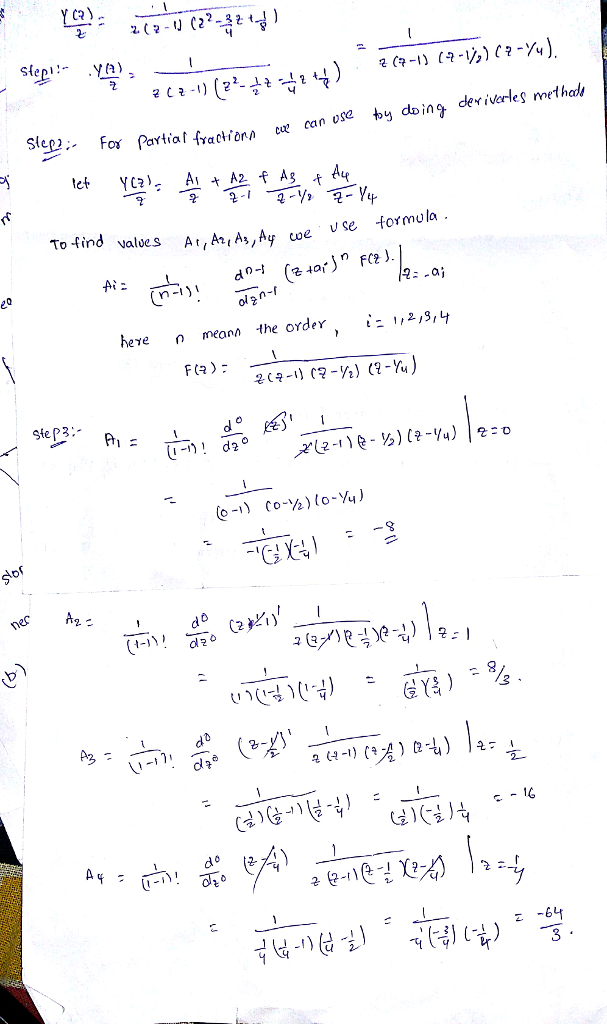 Y(z)/z = 1 / z(z-1)(z²-3/4 z+1/8)
Step1:- Y(z)/z = 1 / z(z-1)(z²-1/2 z-1/4 z+1/8) = 1 / z(z-1)(z-1/2)(z-1/4).
Step2:- For Partial fractionn we can use by doing derivartes methods
let Y(z)/z = A1/z + A2/z-1 + A3/z-1/2 + A4/z-1/4
To find values A1, A2, A3, A4 we use formula.
Ai = 1/(n-1)! d^n-1/dz^n-1 (z+ai)^n F(z).|z=-ai
here n meann the order, i=1,2,3,4
F(z) = 1 / z(z-1)(z-1/2)(z-1/4)
Step3:- A1 = 1/(1-1)! d⁰/dz⁰ (z)¹ 1 / z(z-1)(z-1/2)(z-1/4) | z=0
= 1 / (0-1)(0-1/2)(0-1/4)
= 1 / -1(-1/2)(-1/4) = -8
A2 = 1/(1-1)! d⁰/dz⁰ (z-1)¹ 1 / z(z-1)(z-1/2)(z-1/4) | z=1
= 1 / (1)(1-1/2)(1-1/4) = 1 / (1/2)(3/4) = 8/3.
A3 = 1/(1-1)! d⁰/dz⁰ (z-1/2)¹ 1 / z(z-1)(z-1/2)(z-1/4) | z=1/2
= 1 / (1/2)(1/2-1)(1/2-1/4) = 1 / (1/2)(-1/2)1/4 = -16
A4 = 1/(1-1)! d⁰/dz⁰ (z-1/4) 1 / z(z-1)(z-1/2)(z-1/4) | z=1/4
= 1 / 1/4(1/4-1)(1/4-1/2) = 1 / 1/4(-3/4)(-1/4) = -64/3.